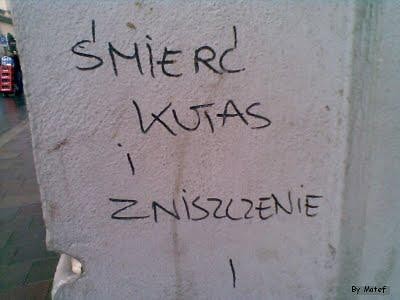 ŚMIERĆ
KUTAS
i
ZNISZCZENIE
!
By Matef